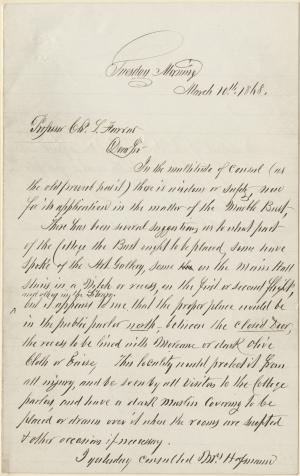 Tuesday Morning
March 10th. 1868.
Professor Chs. S. Farrar
Dear Sir
In the multitude of Counsel (as
the old proverb has it) there is wisdom or safety, now
for its application in the matter of the Marble Bust,
There has been several suggestions as to what part
of the College the Bust ought to be placed, some have
spoke of the Art Gallery, some on the Main Hall
Stairs in a Nitch or recess, on the first or second flight,
and in the Library
but it appears to me, that the proper place would be
in the public parlor north, between the closed Door,
the recess to be lined with Maroone or dark olive
Cloth or Baise, This locality would protect it from
all injury, and be seen by all visitors to the College
parlors and have a dark Muslin Covering to be
placed or drawn over it when the rooms are swept
& other occasions if necessary.
I yesterday consulted Mr